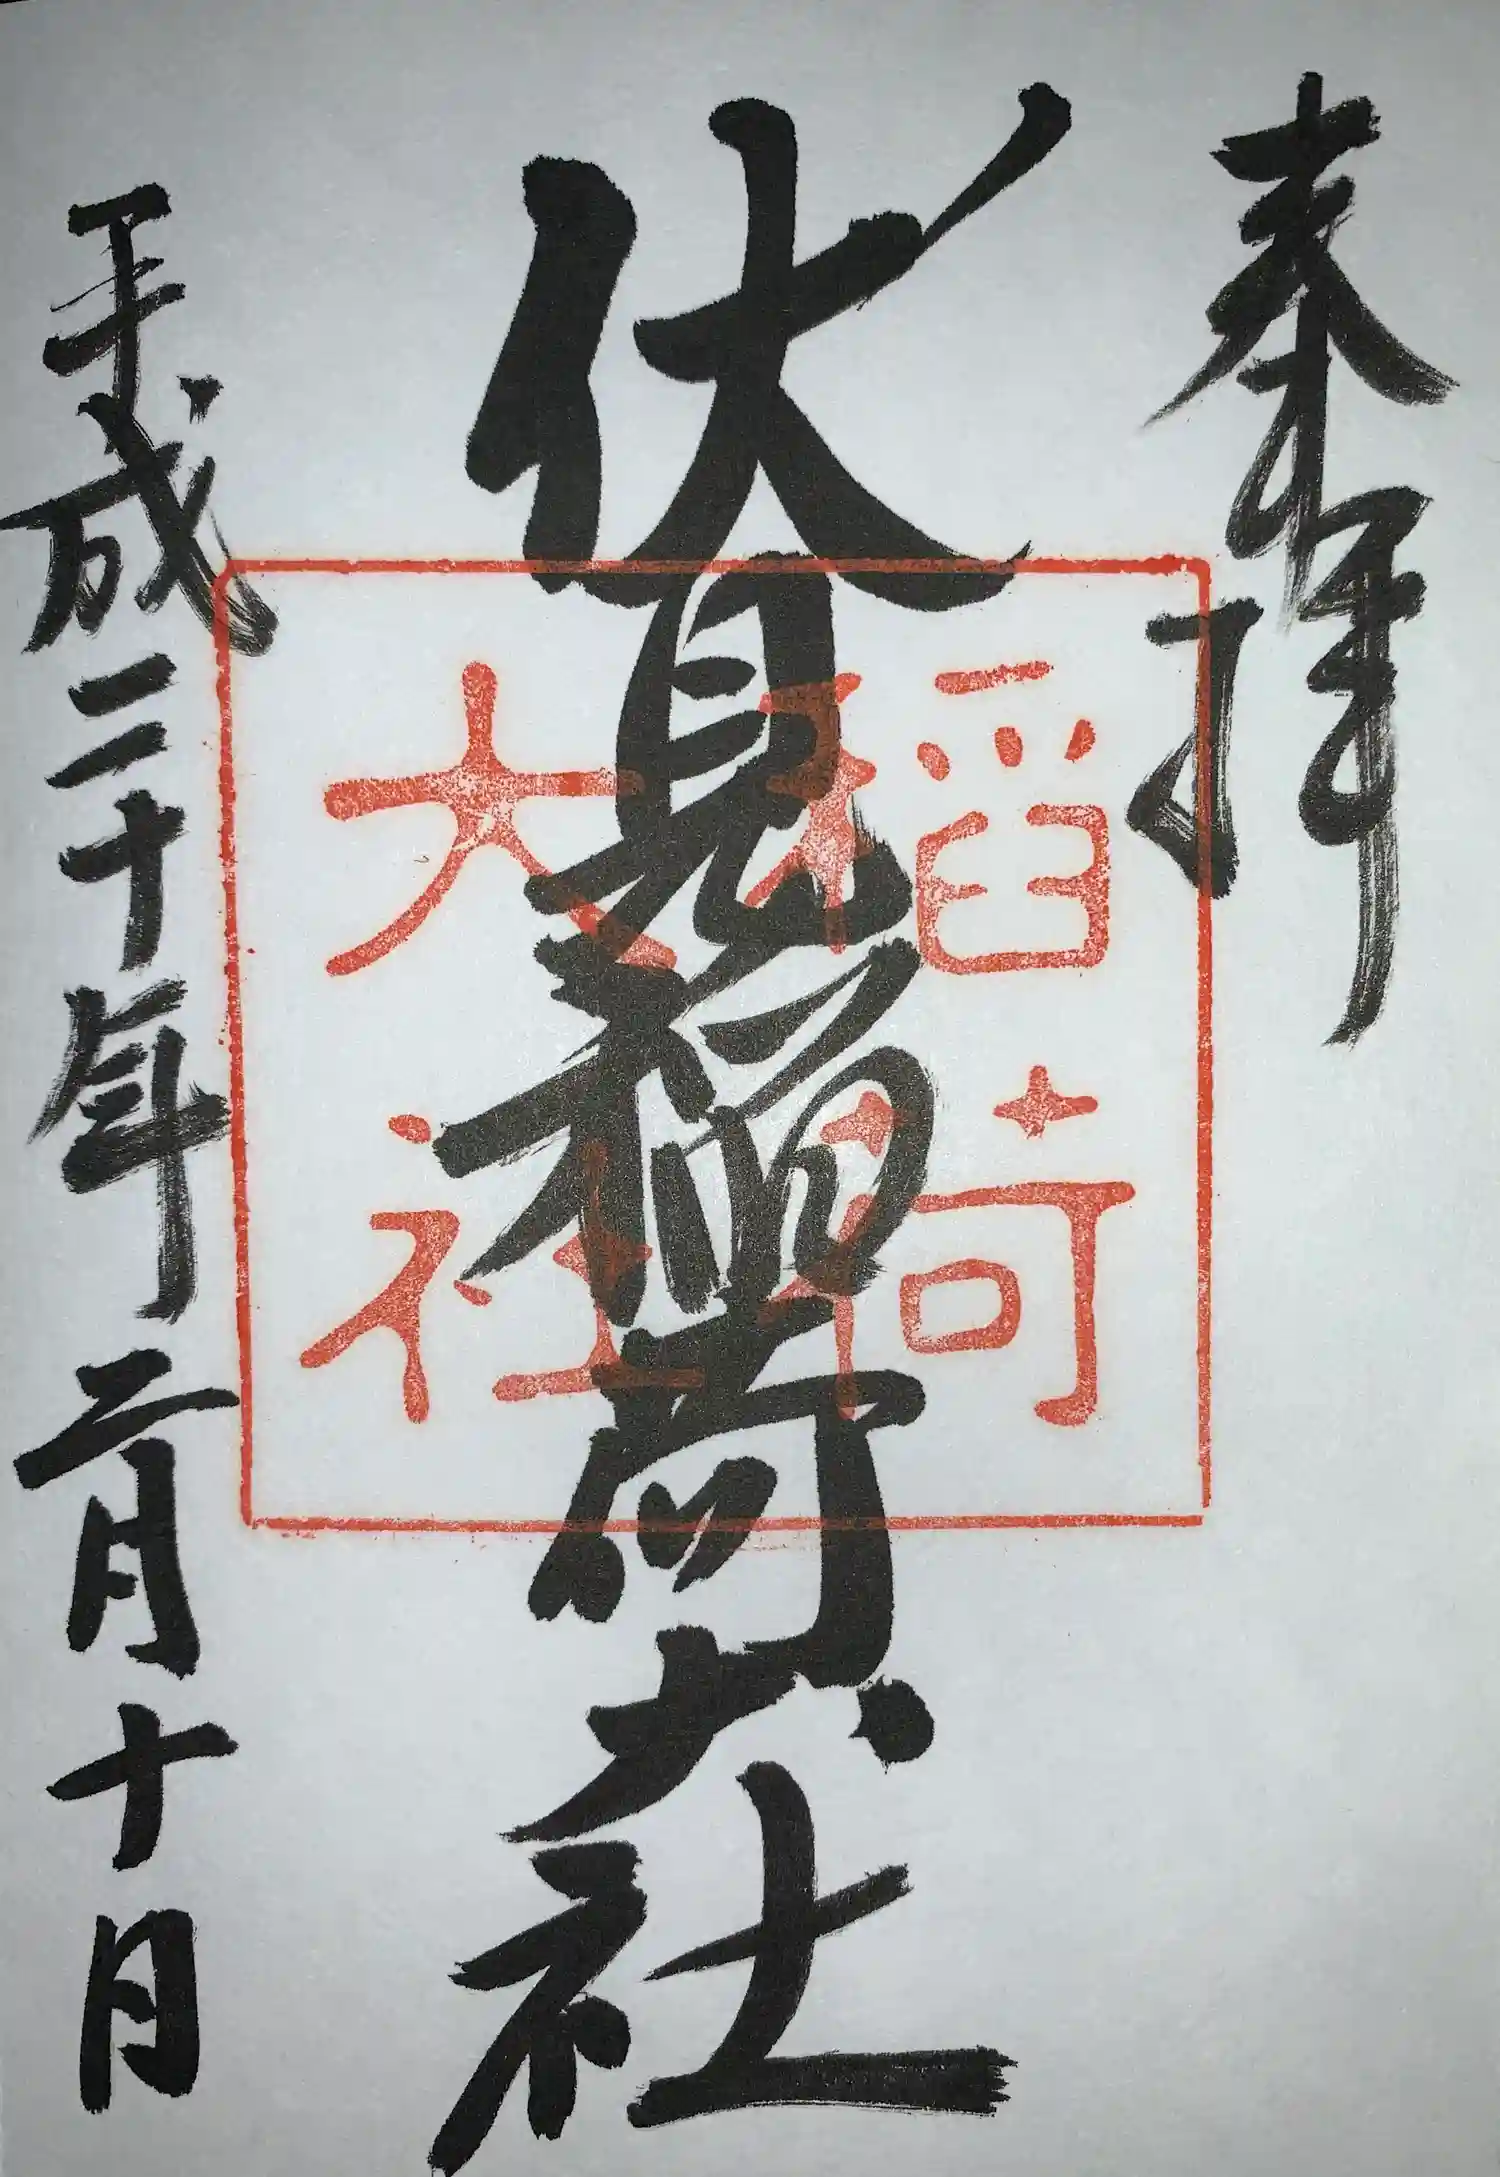 奉拝
伏見稲荷大社
平成二十年二月十日
稲荷
大社